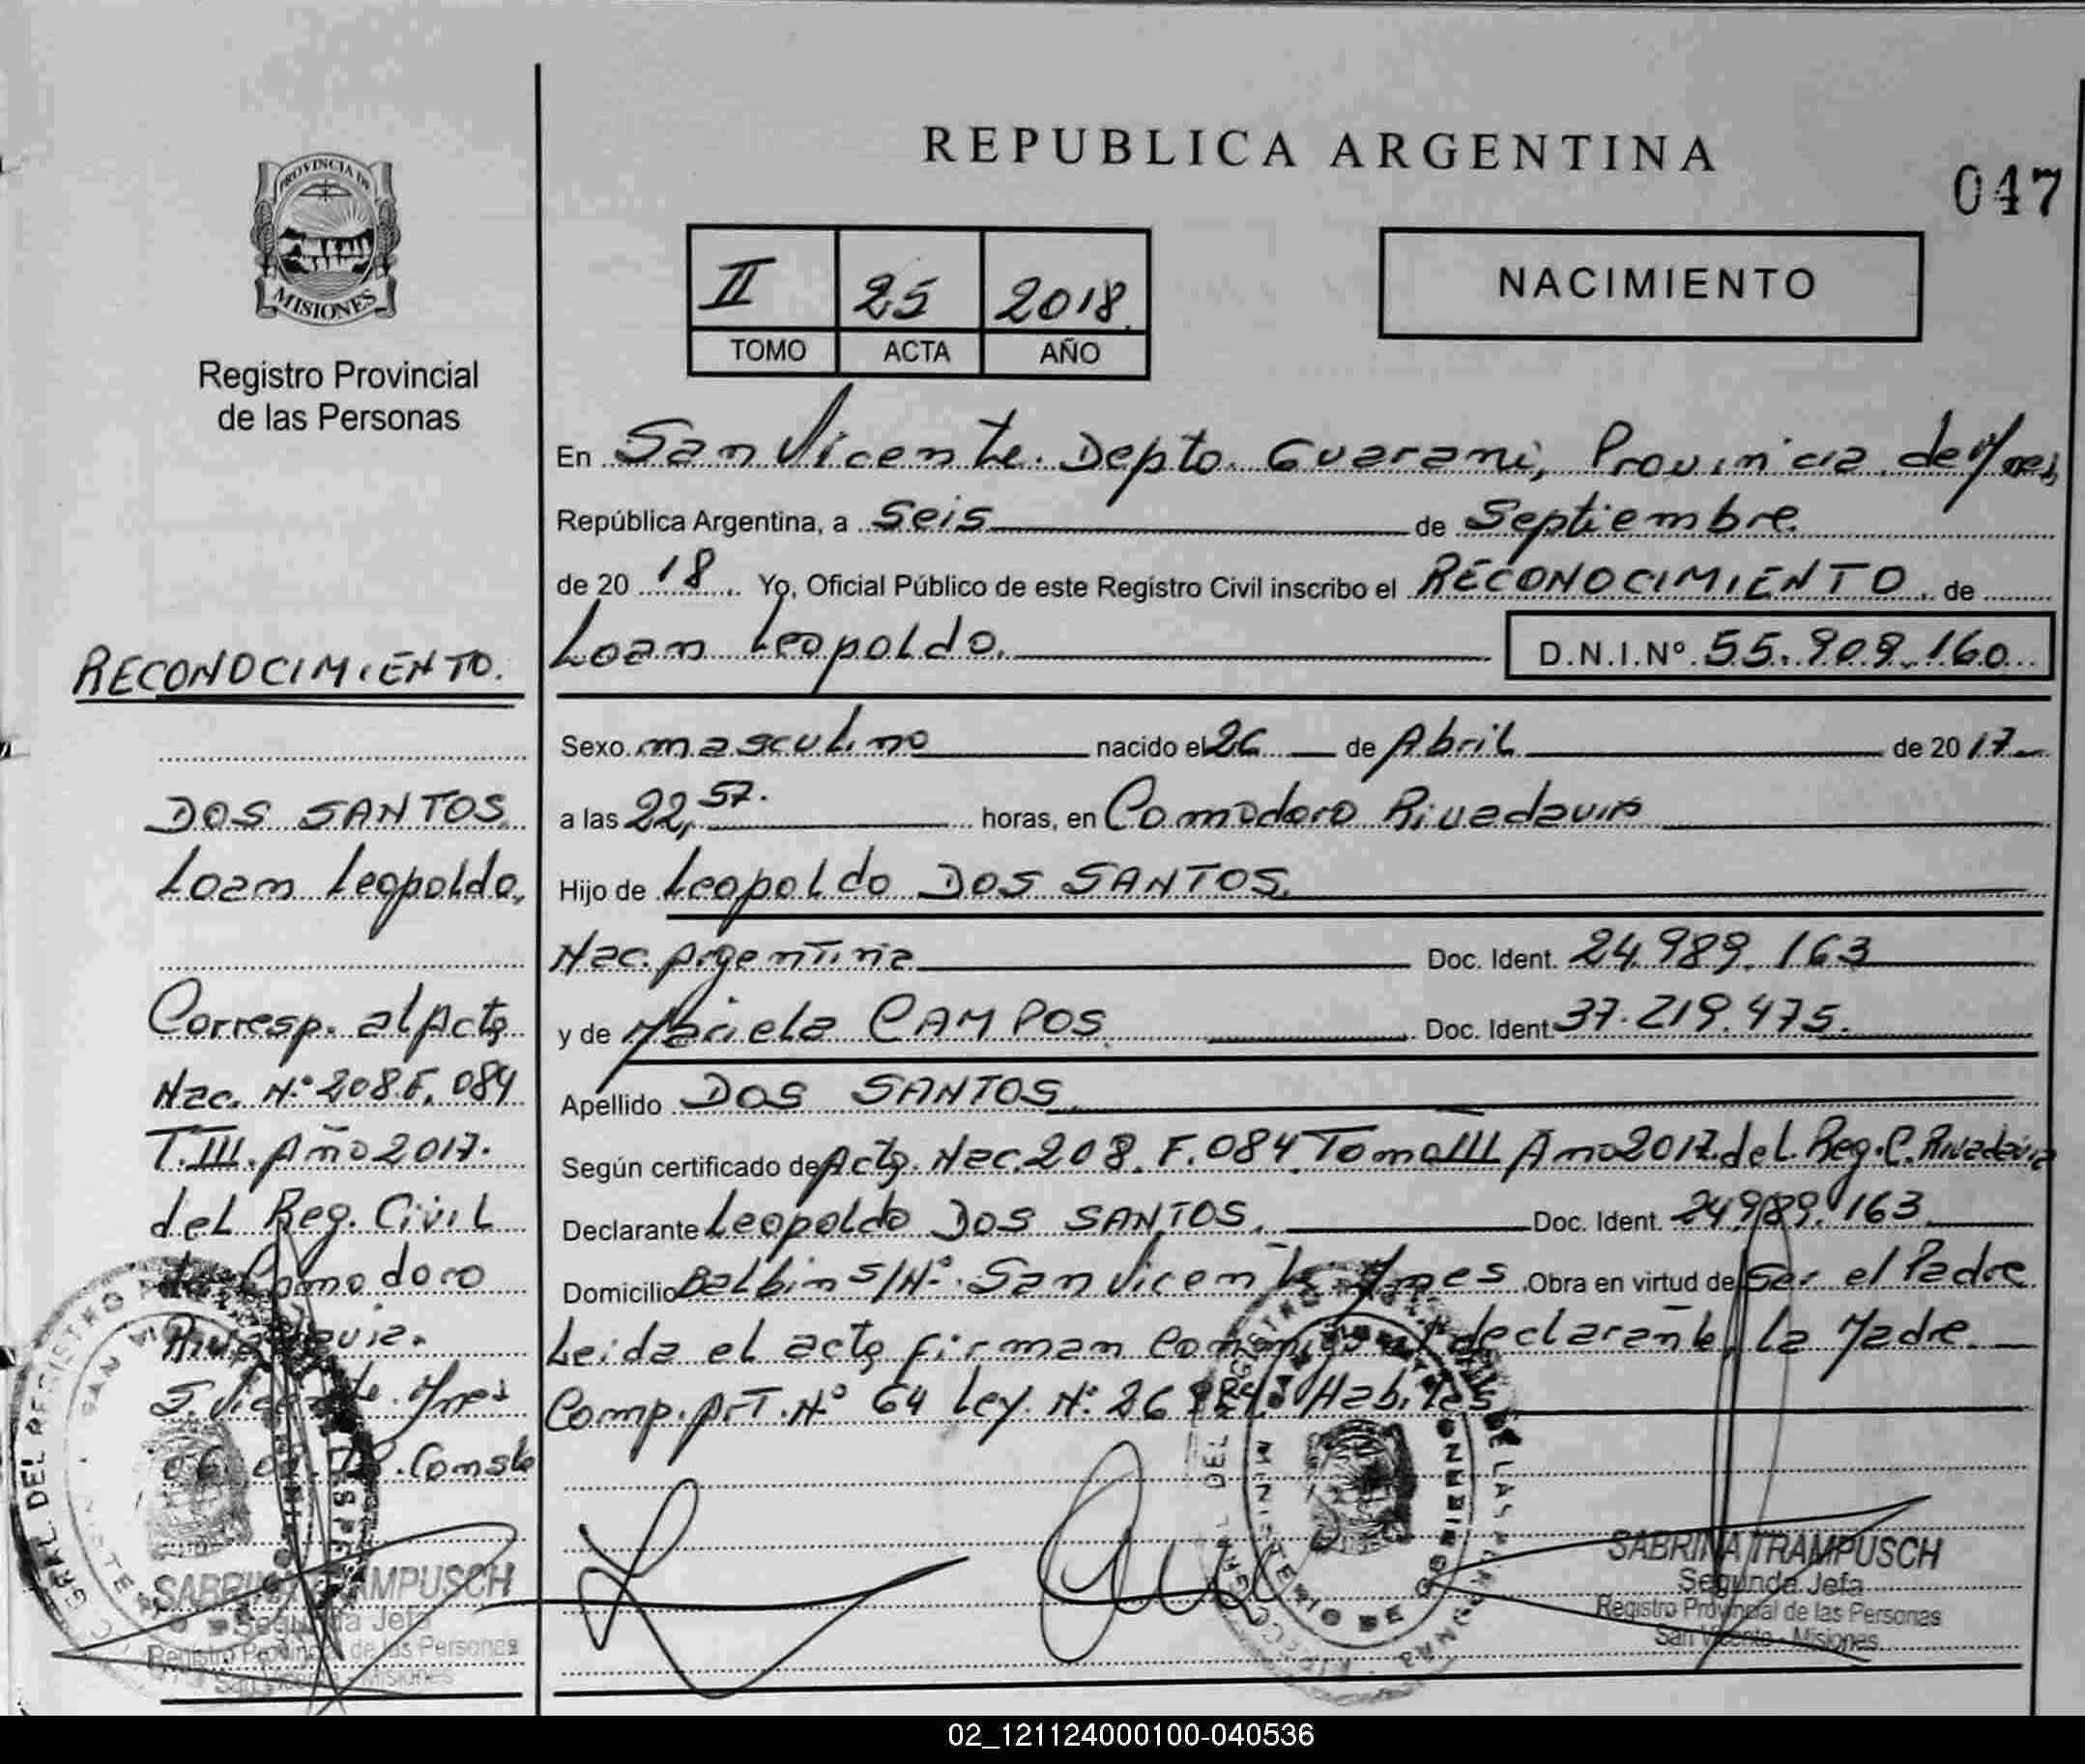 REPUBLICA ARGENTINA
047
PROVINCIA DE
MISIONES
Registro Provincial
de las Personas
II 25 2018
TOMO ACTA AÑO
NACIMIENTO
En San Vicente. Depto. Guarani, Provincia de Mnes,
República Argentina, a Seis de Septiembre
de 20 18 Yo, Oficial Público de este Registro Civil inscribo el RECONOCIMIENTO. de
Loan Leopoldo. D.N.I.Nº 55.909.160
Sexo masculino nacido el 26 de Abril de 20 17
a las 22,57. horas, en Comodoro Rivadavia
Hijo de Leopoldo DOS SANTOS.
Nac. Argentina Doc. Ident. 24.989.163
y de Mariela CAMPOS Doc. Ident. 37.219.475.
Apellido DOS SANTOS
Según certificado de Acta. Nac. 208. F. 084 Tomo III Año 2017 del Reg. C. Rivadavia
Declarante Leopoldo DOS SANTOS. Doc. Ident. 24.989.163
Domicilio Balbin S/Nº. San Vicente Mnes Obra en virtud de Ser el Padre
Leida el acta firman declarante, la Madre.
Comp. Nº 64 Ley. Nº 26 Habiles
RECONOCIMIENTO.
DOS SANTOS
Loan Leopoldo,
Corresp. al Acta
Nac. Nº 208 F. 084
T. III. Año 2017.
del Reg. Civil
de Comodoro
Rivadavia.
S. Vicente. Mnes
Conste
SABRINA TRAMPUSCH
Segunda Jefa
Registro Provincial de las Personas
San Vicente - Misiones
SABRINA TRAMPUSCH
Segunda Jefa
Registro Provincial de las Personas
San Vicente - Misiones
02_121124000100-040536